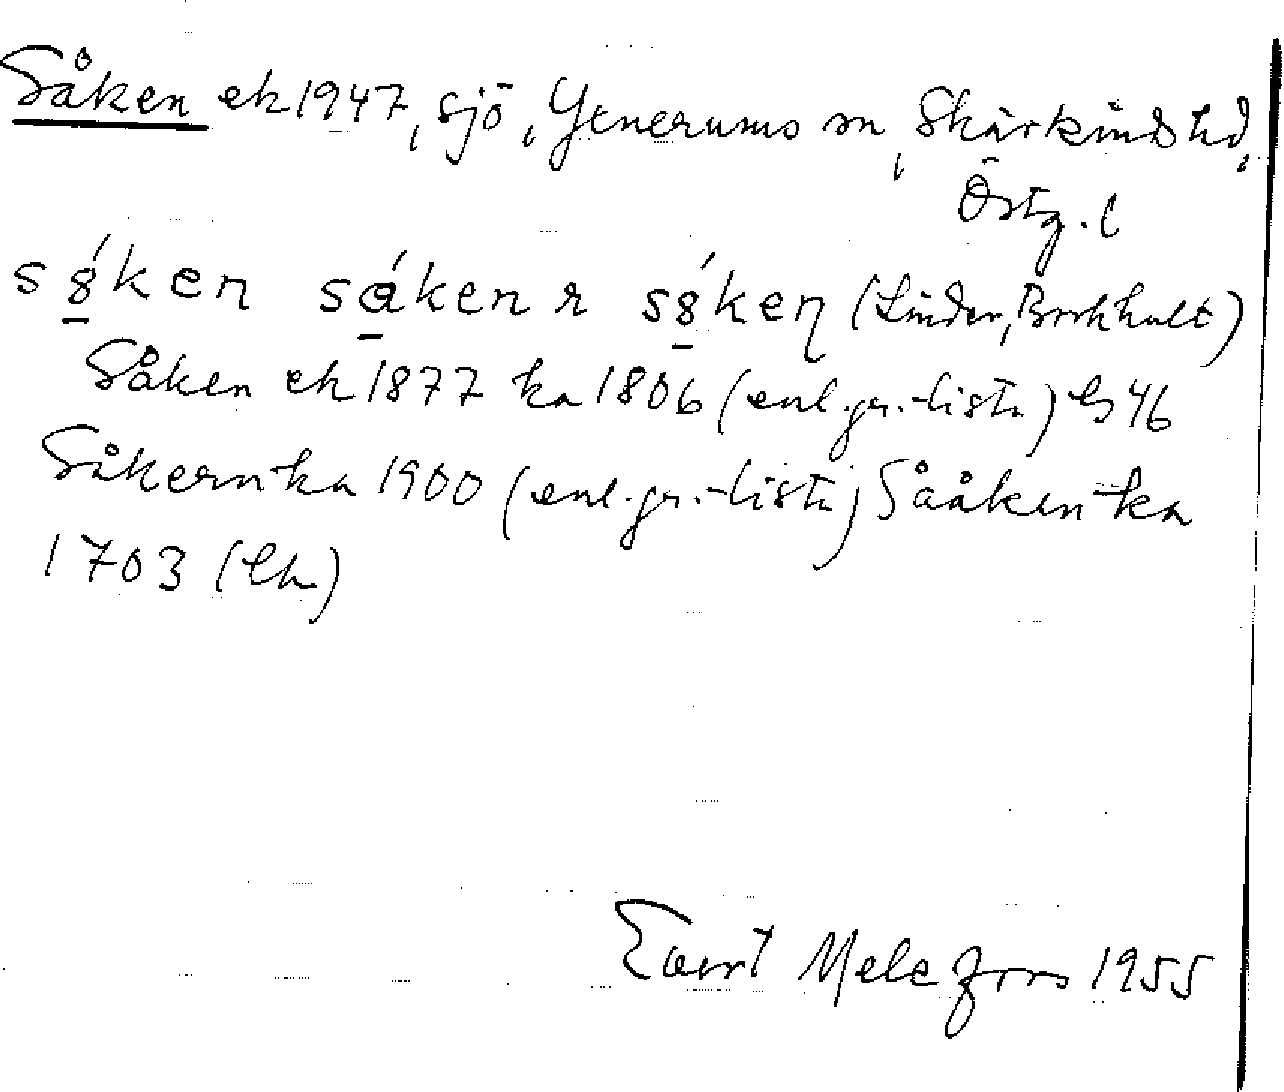 Såken ek 1947, sjö, Yxnerums sn, Skärkinds hd,
Östg. l
sǻken sáken r sǻken (Linder, Borkhult)
Såken ek 1877 ka 1806 (enl. gr.-lista) GS 46
Såkern ka 1900 (enl. gr.-lista) Sååken ka
1703 (Ek)
Evert Melefors 1955